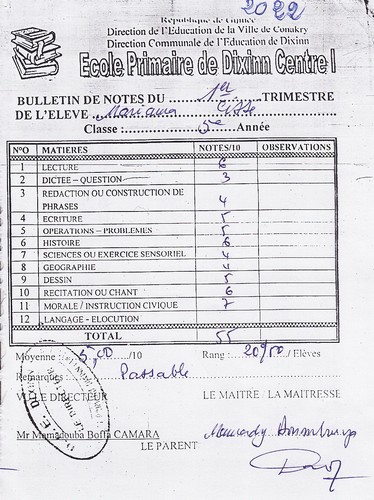 2022
République de Guinée
Direction de l'Education de la Ville de Conakry
Direction Communale de l'Education de Dixinn
Ecole Primaire de Dixinn Centre I
BULLETIN DE NOTES DU 1er TRIMESTRE
DE L'ELEVE Mariama Cisse
Classe : 5e Année
N°O MATIERES NOTES/10 OBSERVATIONS
1 LECTURE 6
2 DICTEE – QUESTION 3
3 REDACTION OU CONSTRUCTION DE PHRASES 4
4 ECRITURE 5
5 OPERATIONS – PROBLEMES 5
6 HISTOIRE 6
7 SCIENCES OU EXERCICE SENSORIEL 4
8 GEOGRAPHIE 4
9 DESSIN 5
10 RECITATION OU CHANT 6
11 MORALE / INSTRUCTION CIVIQUE 7
12 LANGAGE - ELOCUTION
TOTAL 55
Moyenne : 5,00 /10 Rang : / Elèves
Remarques : Passable
DIRECTEUR LE MAITRE / LA MAITRESSE
Mr Mamadouba Boffa CAMARA
LE PARENT